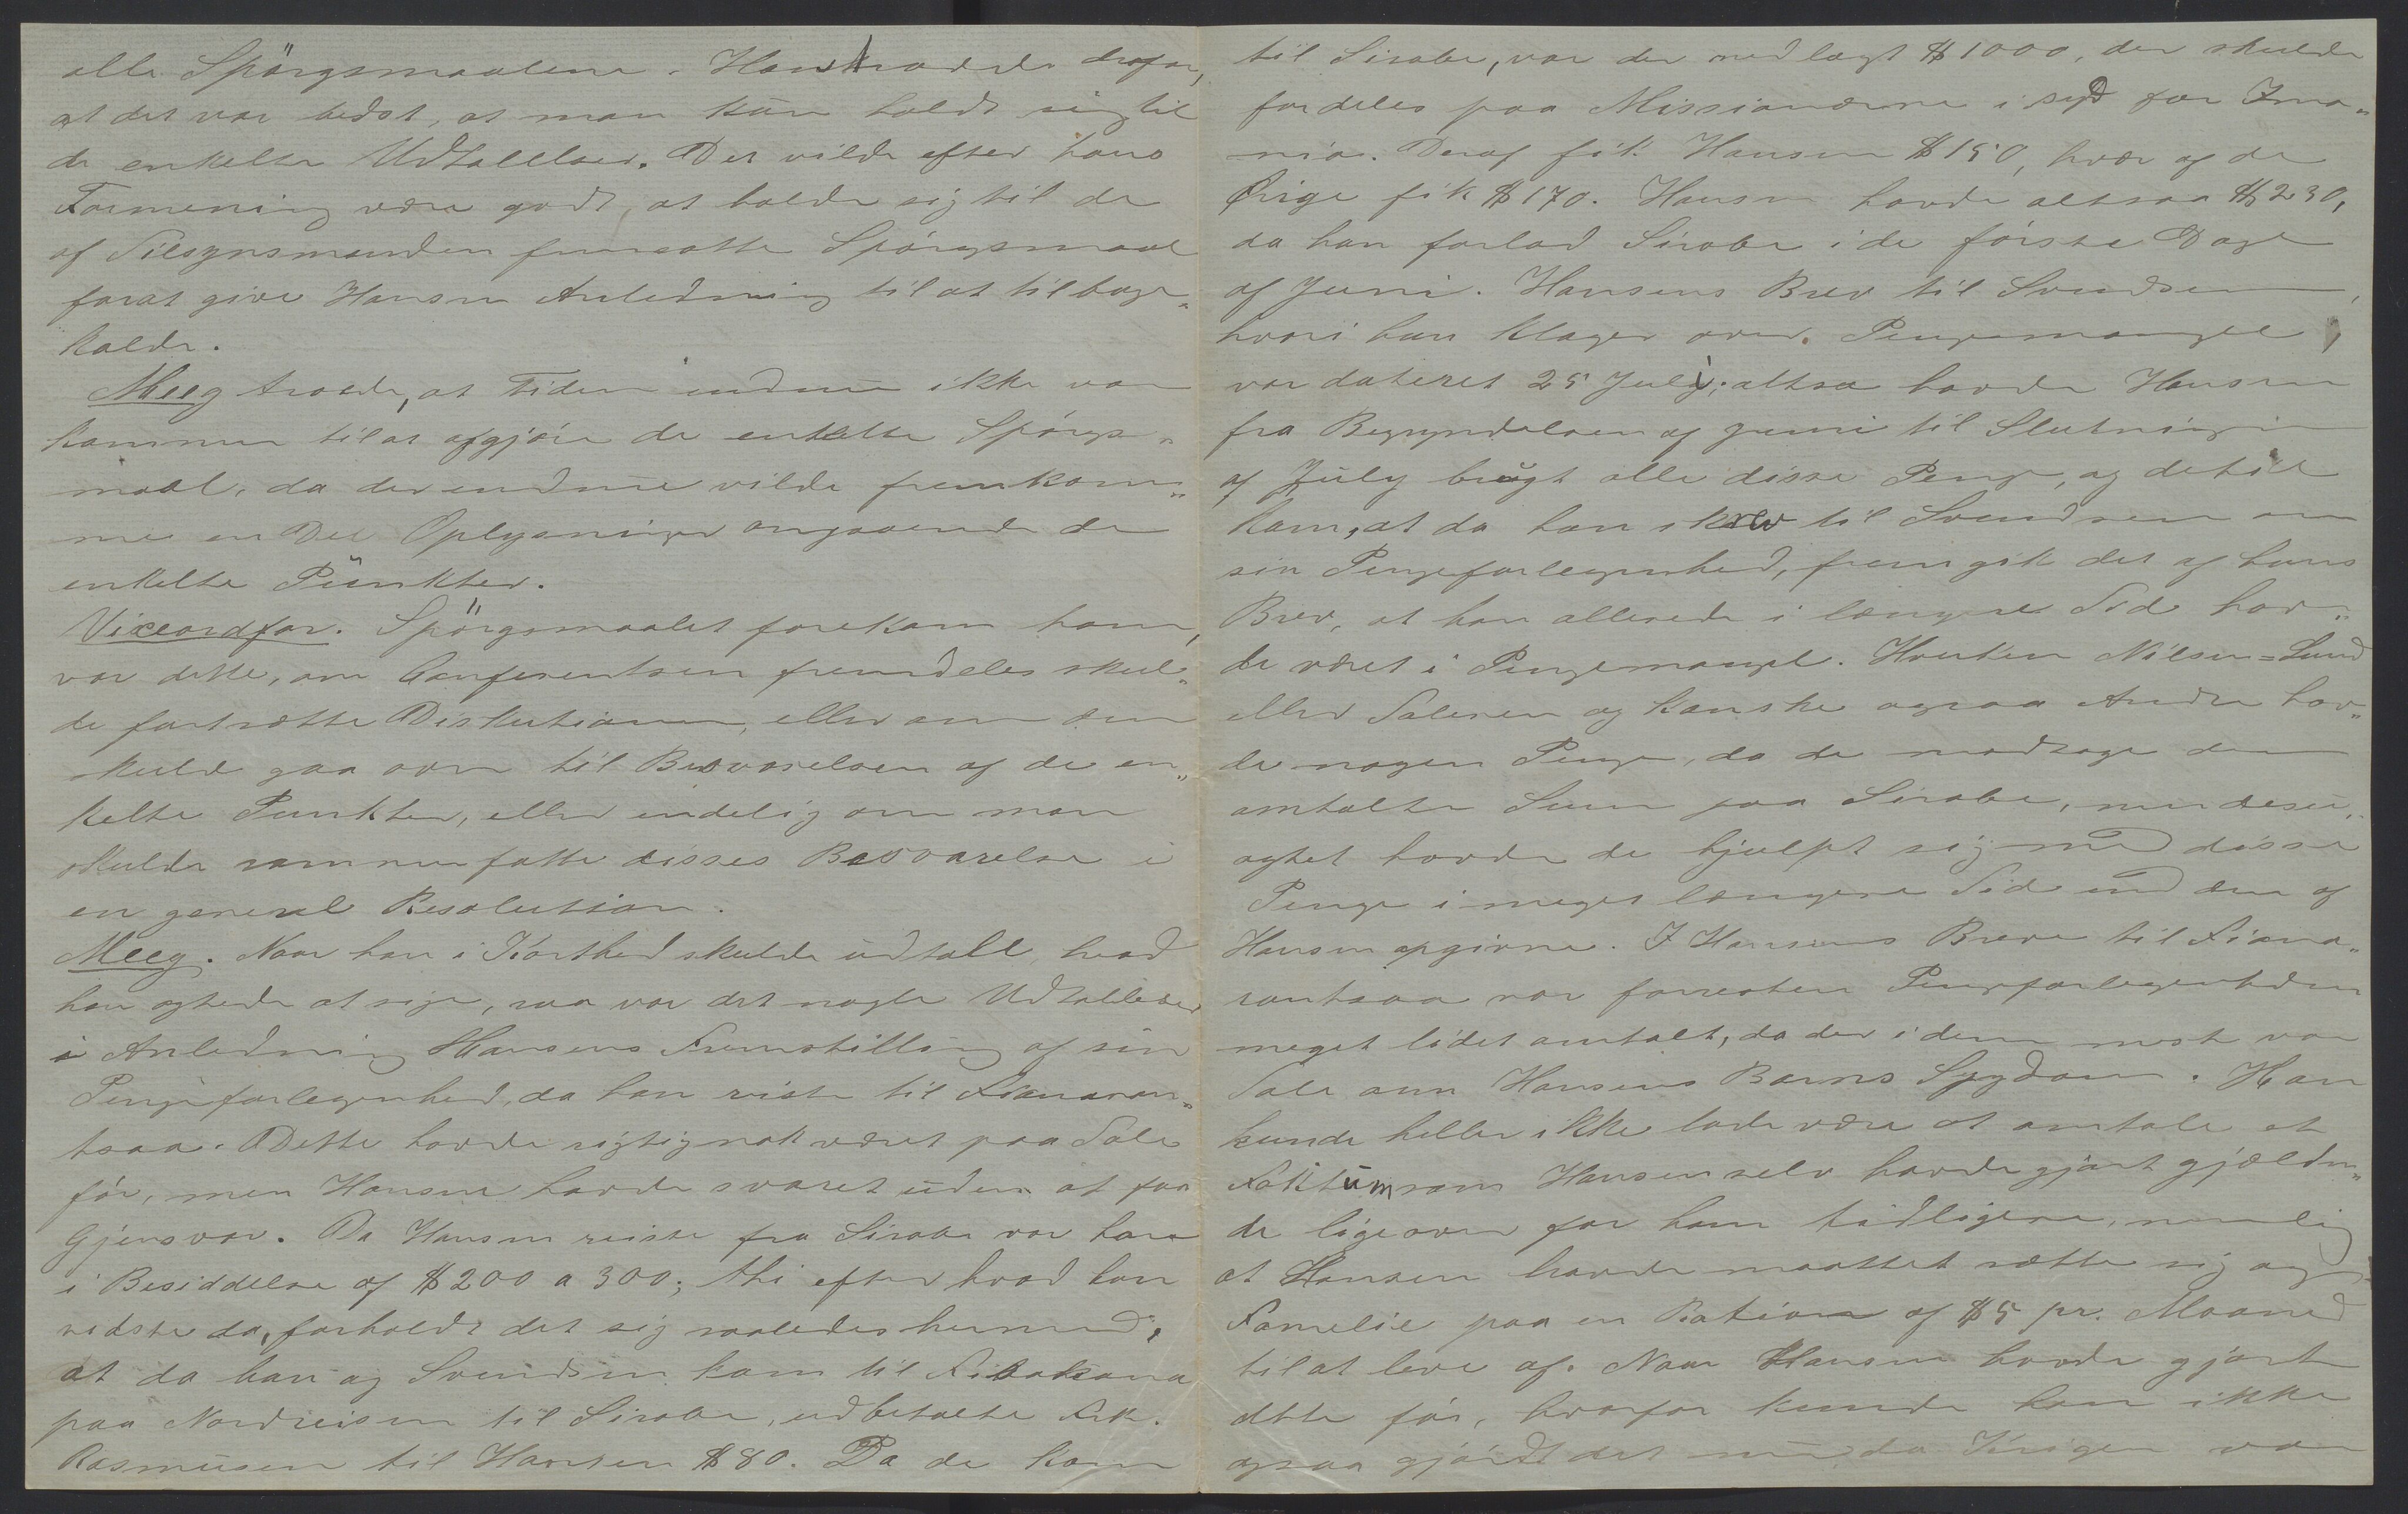 alle Spörgsmaalene. Han troede derfor,
at det var bedst, at man kun holdt sig til
de enkelte Udtalelser. Det vilde efter hans
Formening være godt, at holde sig til de
af Tilsynsmanden fremsatte Spörgsmaal
forat give Hansen Anledning til at tilbage„
kalde.
Meeg troede, at Tiden endnu ikke var
kommen til at afgjöre de enkelte Spörgs„
maal, da der endnu vilde fremkom„
me en Del Oplysninger angaaende de
enkelte Punkter.
Viceordfør. Spörgsmaalet forekom ham,
var dette, om Conferentsen fremdeles skul„
de fortsætte Diskutionen, eller om den
skulde gaa over til Besvarelsen af de en„
kelte Punkter, eller endelig om man
skulde sammenfatte disses Besvarelse i
en general Resolution.
Meeg. Naar han i Korthed skulde udtale, hvad
han agtede at sige, saa var det nogle Udtalelser
i Anledning Hansens Fremstilling af sin
Pengeforlegenhed, da han reiste til Fianaran„
tsoa. Dette havde rigtignok været paa Tale
för, men Hansen havde svaret uden at faa
Gjensvar. Da Hansen reiste fra Sirabe var han
i Besiddelse af $ 200 a 300; thi efter hvad han
vidste da, forholdt det sig saaledes hermed,
at da han og Svendsen kom til Fisakana
paa Nordreisen til Sirabe, udbetalte Frk.
Rasmusen til Hansen $ 80. Da de kom
til Sirabe, var der nedlagt $ 1000, der skulde
fordeles paa Missionærerne i syd for Ima„
nia. Deraf fik Hansen $ 150, hver af de
Øvrige fik $ 170. Hansen havde altsaa $ 230,
da han forlod Sirabe i de förste Dage
af Juni. Hansens Brev til Svendsen,
hvori han klager over Pengemangel,
var dateret 25 July; altsaa havde Hansen
fra Begyndelsen af Juni til Slutningen
af July brugt alle disse Penge, og dertil
kom, at da han skrev til Svendsen om
sin Pengeforlegenhed, fremgik det af hans
Brev, at han allerede i længere Tid hav„
de været i Pengemangel. Hverken Nilsen=Lund
eller Taleren og kanske ogsaa Andre hav„
de nogen Penge, da de modtoge den
omtalte Sum paa Sirabe, men desu„
agtet havde de hjulpet sig med disse
Penge i meget længere Tid end den af
Hansen opgivne. I Hansens Breve til Fiana„
rantsoa var forresten Pengeforlegenheden
meget lidet omtalt, da der i dem mest var
Tale om Hansens Barns Sygdom. Han
kunde heller ikke lade være at omtale et
Faktum som Hansen selv havde gjort gjælden„
de ligeover for ham tidligere, nemlig
at Hansen havde maattet sætte sig og
Familie paa en Ration af $ 5 pr. Maaned
til at leve af. Naar Hansen havde gjort
dette för, hvorfor kunde han ikke
ogsaa gjöre det nu, da Krigen var